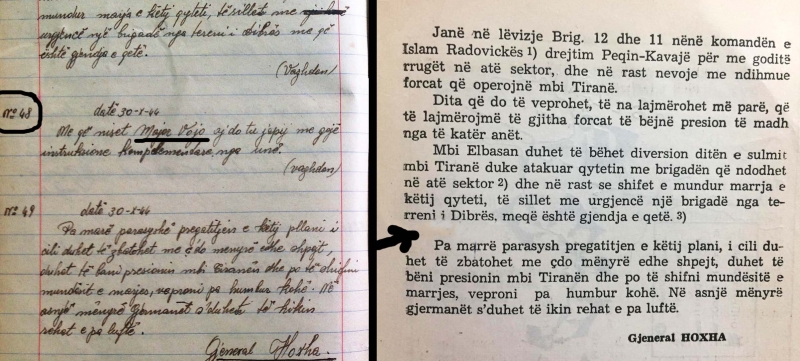 mundur marrja e këtij qyteti, të sillet me
urgjencë një brigadë nga terreni i Dibrës me që
është gjendja e qetë.
(Vaghdan)
Nº 48
datë 30-X-44
Me që niset Major Vojo aj do tu japij me gojë
instruksione komplementare nga unë.
(Vaghdan)
Nº 49
datë 30-X-44
Pa marrë parasysh pregatitjen e këtij pllani i
cili duhet të zbatohet me çdo mënyrë edhe shpejt,
duhet të bëni presionin mbi Tiranën dhe po të shifni
mundësit e marrjes, veproni pa humbur kohë. Në
asnjë mënyrë gjermanët s'duhet të hikin
rehat e pa luftë.
Gjeneral Hoxha.
Janë në lëvizje Brig. 12 dhe 11 nënë komandën e
Islam Radovickës 1) drejtim Peqin-Kavajë për me goditë
rrugët në atë sektor, dhe në rast nevoje me ndihmue
forcat që operojnë mbi Tiranë.
Dita që do të veprohet, të na lajmërohet më parë, që
të lajmërojmë të gjitha forcat të bëjnë presion të madh
nga të katër anët.
Mbi Elbasan duhet të bëhet diversion ditën e sulmit
mbi Tiranë duke atakuar qytetin me brigadën që ndodhet
në atë sektor 2) dhe në rast se shifet e mundur marrja e
këtij qyteti, të sillet me urgjencë një brigadë nga te-
rreni i Dibrës, meqë është gjendja e qetë. 3)
Pa marrë parasysh pregatitjen e këtij plani, i cili du-
het të zbatohet me çdo mënyrë edhe shpejt, duhet të
bëni presionin mbi Tiranën dhe po të shifni mundësitë e
marrjes, veproni pa humbur kohë. Në asnjë mënyrë
gjermanët s'duhet të ikin rehat e pa luftë.
Gjeneral HOXHA